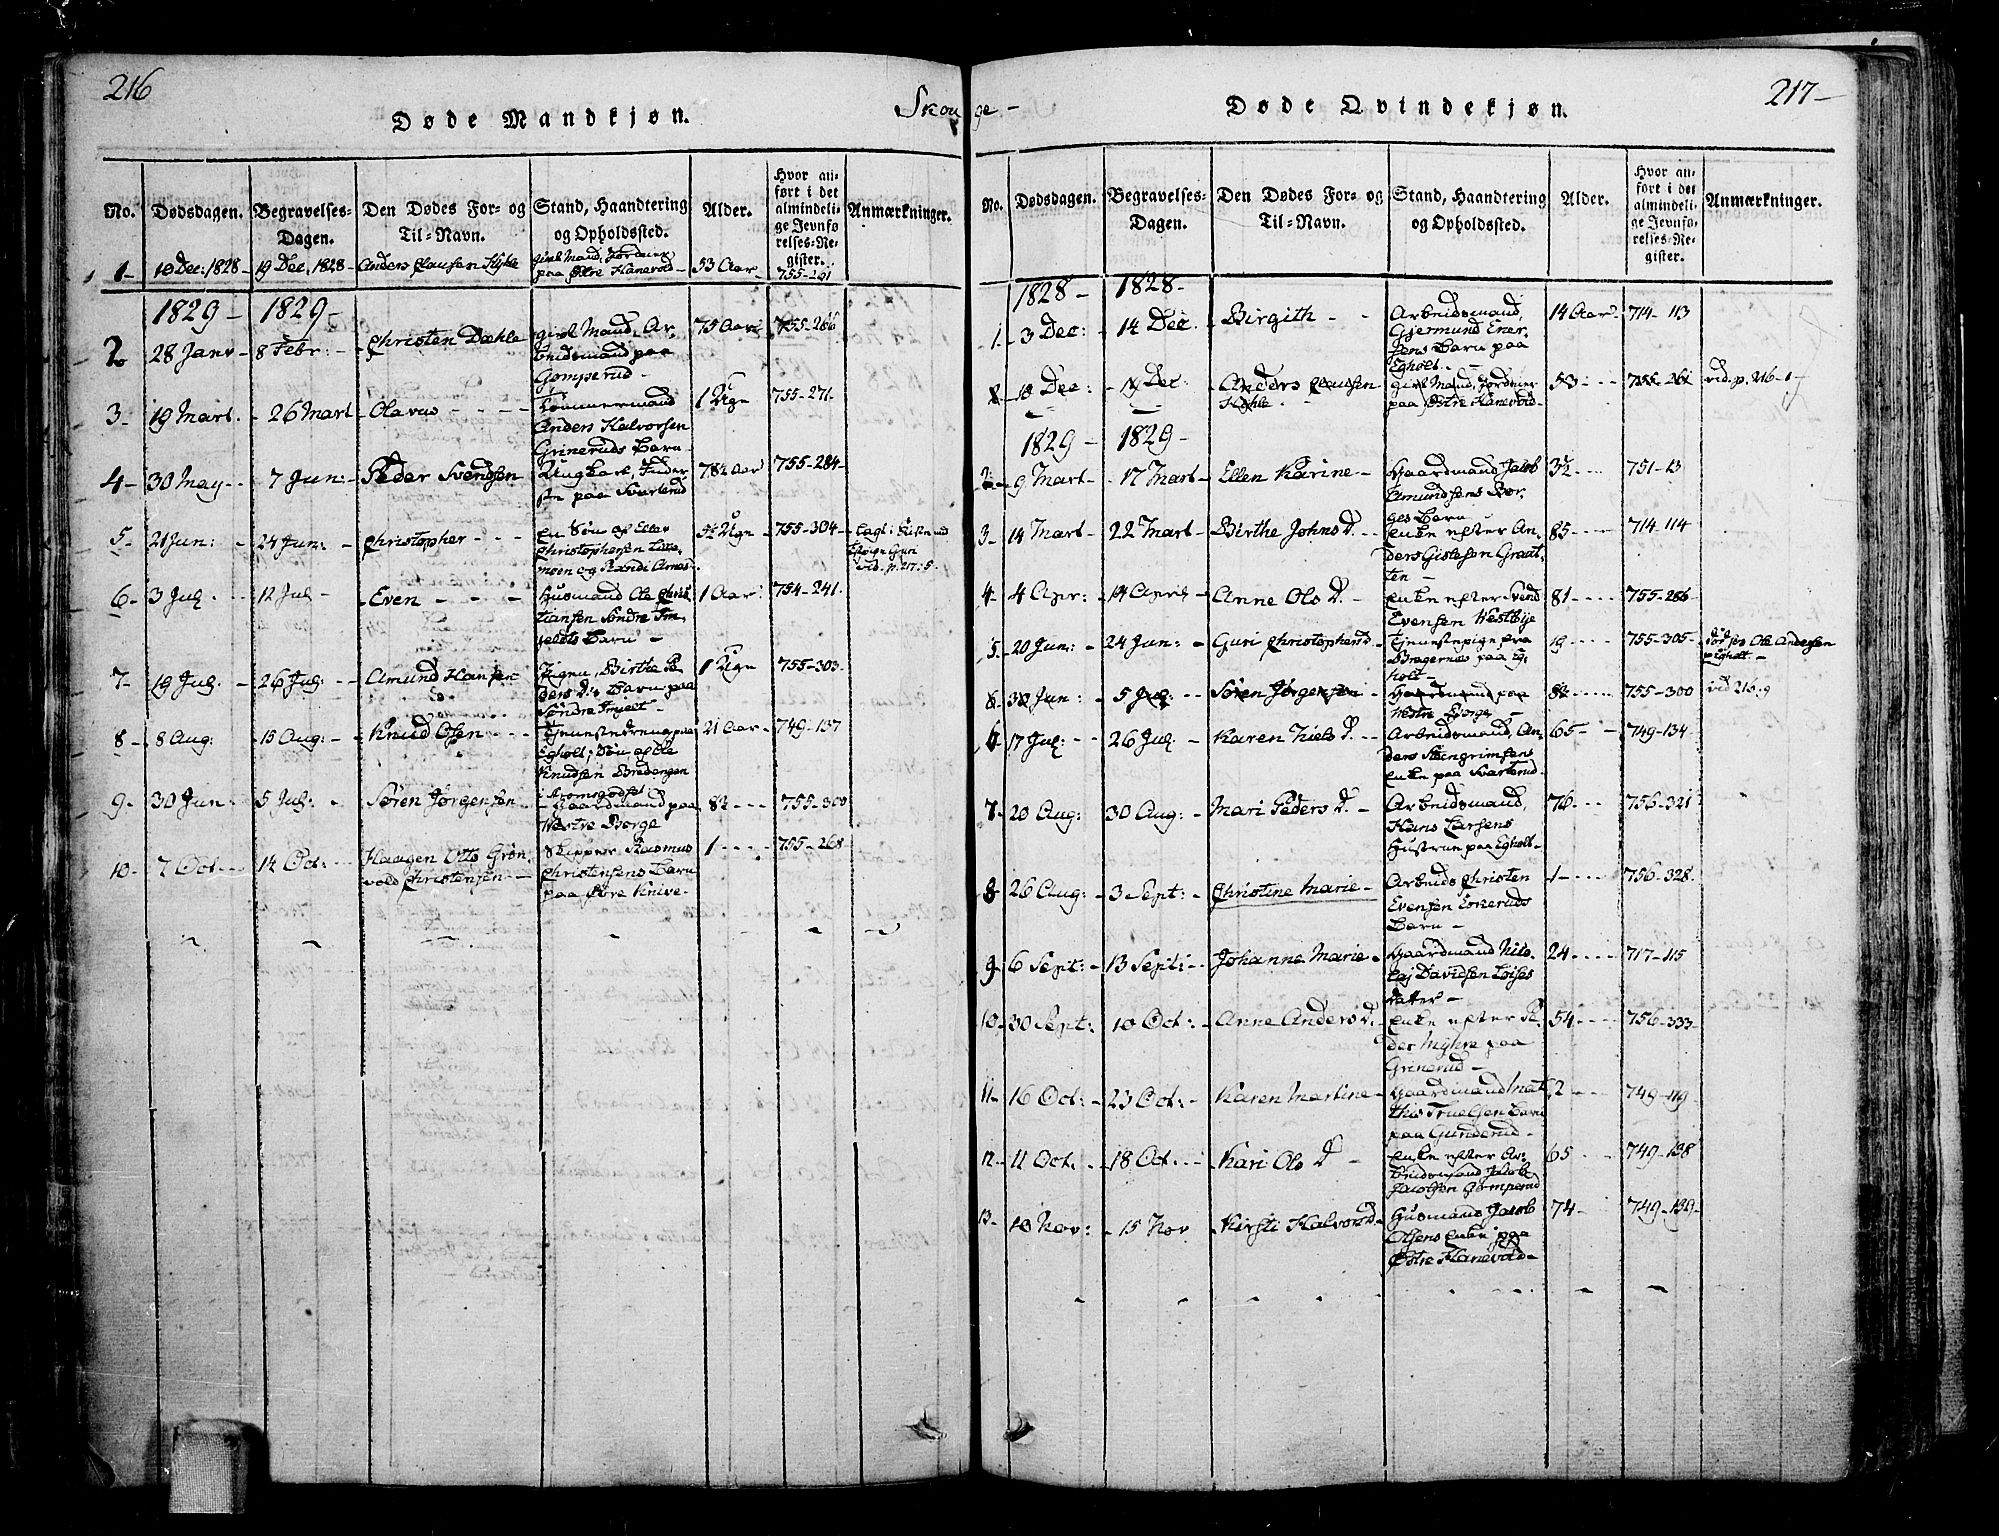 216
Skouge -
217 -
Døde Mandkjøn.
No. Dødsdagen. Begravelses-Dagen. Den Dødes For- og Til-Navn. Stand, Haandtering og Opholdssted. Alder. Hvor anført i det almindelige Jevnførelses-Register. Anmærkninger.
1 - 10 Dec: 1828 - 19 Dec. 1828 - Anders Clausen Hyhle
gift Mand, Jorddreier
paa Østre Hanevold - 53 Aar - 755-291
1829 - 1829 -
2 28 Janv - 8 Febr: - Christen Dæhle
gift Mand, Ar-
beidsmand paa
Gomperud - 75 Aar 755-286
3 - 19 Mart. - 26 Mart - Olavus - - - -
Tømmermand
Anders Halvorsen
Grineruds Barn - 1 Ugn 755-271-
4 - 30 May - - 7 Jun: - Peder Svendsen
Ungkarl, Inder-
st paa Svarterud 78½ Aar 755-284-
5 - 21 Jun: - 24 Jun: - Christopher - - -
en Søn af Ellev
Christophersen
moen og Randi Amos 5½ Ugn - 755-304-
Lagt i Kisten ved
Pigen Guri
vid. p. 217: 5.
6 - 3 Jul - 12 Jul - - Even - - - -
Husmand Ole Chris
tiansen Søndre Im-
jeldts Barn - 1 Aar: 754-241.
7 - 19 Jul: - 26 Jul: - Amund Hansen
Pigen, Birthe Pe
ders D:s Barn paa
Søndre Imjelt - 1 Ugn 755-303.
8 - 8 Aug: - 15 Aug: - Knud Olsen - - -
Tjenestedreng paa
Egholt; Søn af Ole
Knudsen Bredengen
i Modumsgodset 21 Aar - 749-137
9 - 30 Jun: 5 Jul: - Søren Jørgensen -
- Gaardmand paa
Westre Borge 82 - - - 755-300
10 - 7 Oct - - 14 Oct: - Haagen Otto Grøn
vold Christensen -
Skipper Rasmus
Christensens Barn
paa Øvre Knive - 1 - - - 755-268
Døde Qvindekjøn.
No. Dødsdagen. Begravelses-Dagen. Den Dødes For- og Til-Navn. Stand, Haandtering og Opholdssted. Alder. Hvor anført i det almindelige Jevnførelses-Register. Anmærkninger.
1828 - 1828 -
1 - 3 Dec: - 14 Dec. - Birgith - -
Arbeidsmand,
Gjermund Ener
sens Barn paa
Egholt. - - 14 Aar 714-113
10 Dec: - 19 Dec: Anders Clausen
Hyhle -
gift Mand, Jorddreier
paa Østre Hanevold - 53 - - 755-261 vid. p. 216-1 -
1829 - 1829 -
2 - 9 Mart - 17 Mart - Ellen Karine -
Gaardmand Jacob
Amundsens Bor,
ges Barn - 32 - - - 751-13
3 - 14 Mart - 22 Mart - Birthe Johns D. -
Enke efter An-
ders Gislesen Graat-
ten - 85 - - - 714-114
4 - 4 Apr: - 14 April - Anne Ols D. -
Enke efter Svend
Evensen Westbye 81 - - - 755-286 -
5 - 20 Jun: - 24 Jun: - Guri Christophers D
Tjenestepige fra
Bragernæs paa Eg-
holt - 19 - - - 755-305 -
Ole Andersen
Egholt -
6 - 30 Jun: - 5 Jul: - Søren Jørgensen -
Gaardmand paa
Westre Borge - 82 - - - 755-300 vid 216:9
6 - 17 Jul: - 26 Jul: - Karen Niels D. -
Arbeidsmand, An-
ders Steengrimsens
Enke paa Svarterud. 65 - - 749-134.
7 - 20 Aug: 30 Aug: - Mari Peders D. -
Arbeidsmand,
Hans Larsens
Hustrue paa Egholt - 76 - - 756-321
8 - 26 Aug: - 3 Sept: - Christine Marie -
Arbeids Christen
Evensen Eskeruds
Barn - 1 - - - 756-328.
9 - 6 Sept: - 13 Sept: - Johanne Marie -
Gaardmand Nico-
laj Davidsen Loises
Datter - 24 - - - 717-115
10 - 30 Sept: - 10 Oct: - Anne Anders D.
Enke efter Pe-
der Myhre paa
Grinerud - 54 - - - 756-333 -
11 - 16 Oct: - 23 Oct: - Karen Martine -
Gaardmand Mat
this Truelsen Barn
paa Gunderud - 2 - - 749-119 -
12 - 11 Oct. - 18 Oct. - Kari Ols D -
Enke efter Ar-
beidsmand Jacob
Jacobsen Gomperud 65 - - 749-138
13 - 10 Nov: - 15 Nov - Kirsti Halvors D -
Husmand Jacob
Olsens Enke paa
Østre Hanevold - 74 - - 749-139 -